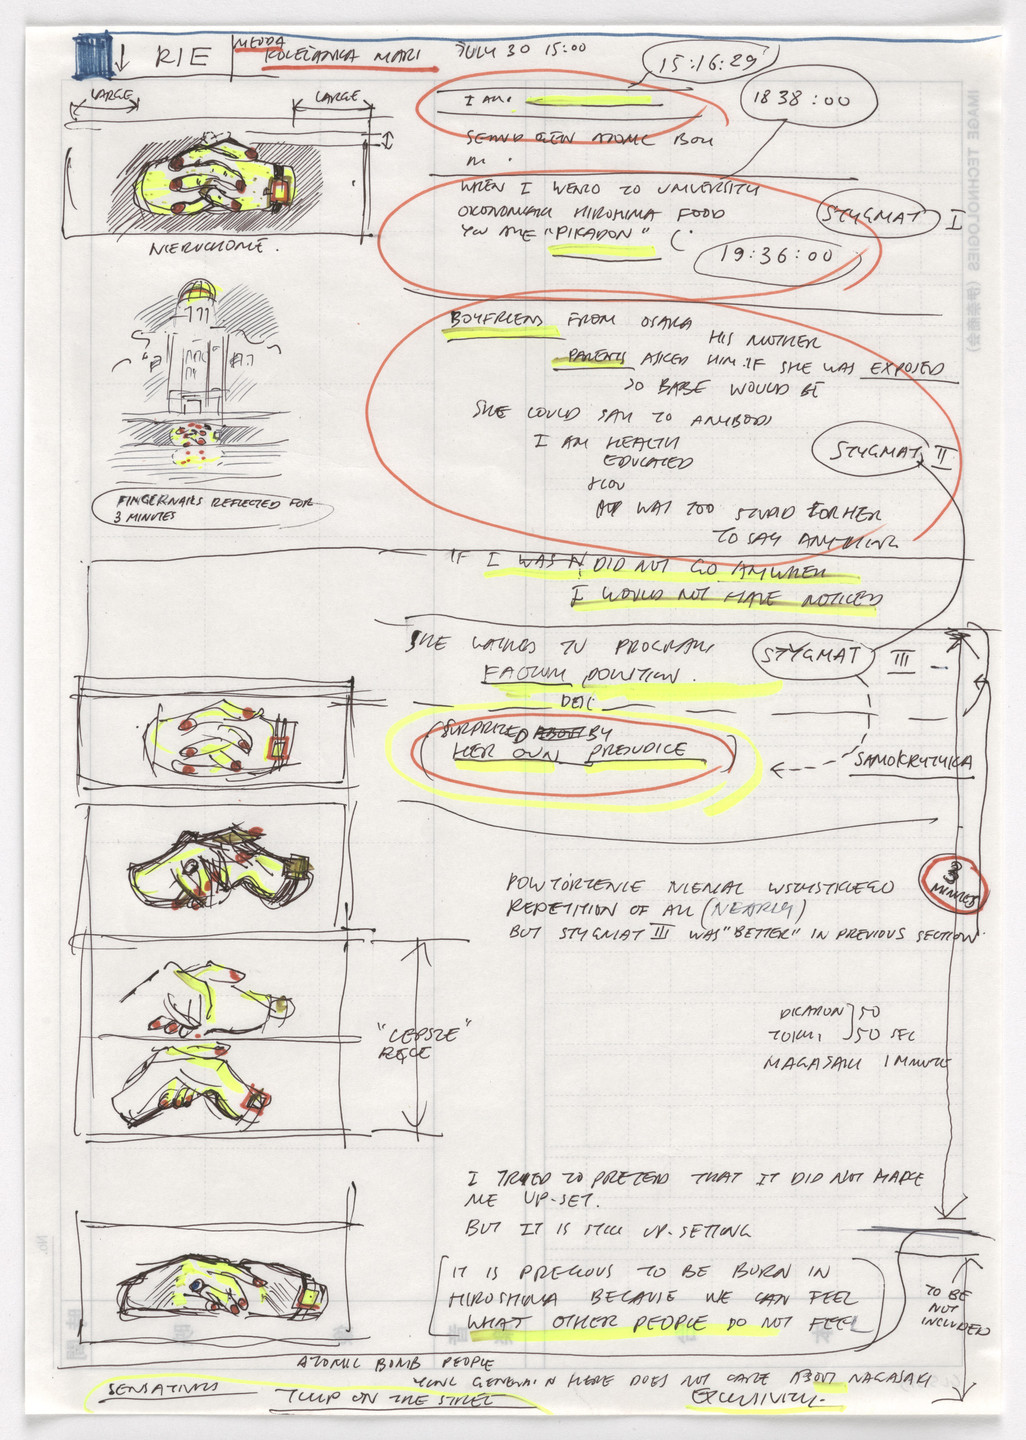 RIE
MEDDA
KOLEŻANKA MARI
JULY 30 15:00
15:16:29
18 38:00
LARGE
LARGE
I AM
ATOMIC BOM
WHEN I TO UNIVERSITY
HIROSHIMA FOOD
YOU ARE "PIKADON"
STYGMAT I
19:36:00
NIERUCHOME.
BOYFRIEND FROM OSAKA
HIS MOTHER
PARENTS ASKED HIM. IF SHE WAS EXPOSED
SO BABE WOULD BE
SHE COULD SAY TO ANYBODY
I AM HEALTH
EDUCATED
STYGMAT II
IT WAS TOO FOR HER
TO SAY ANYTHING
FINGERNAILS REFLECTED FOR
3 MINUTES
IF I WAS DID NOT GO ANYWHER
I WOULD NOT HAVE NOTICED
SHE TO PROGRAM
STYGMAT III
SURPRIZED BY
HER OWN PREJUDICE
SAMOKRYTYKA
3
MINUTES
POWTÓRZENIE NIEMAL WSZYSTKIEGO
REPETITION OF ALL (NEARLY)
BUT STYGMAT III WAS "BETTER" IN PREVIOUS SECTION
PIKADON 50
50 SEC
NAGASAKI 1 MINUTE
"LEPSZE"
RĘCE
I TRIED TO PRETEND THAT IT DID NOT MAKE
ME UP-SET.
BUT IT IS STILL UP-SETTING
IT IS PRECIOUS TO BE BORN IN
HIROSHIMA BECAUSE WE CAN FEEL
WHAT OTHER PEOPLE DO NOT FEEL
TO BE
NOT
INCLUDED
ATOMIC BOMB PEOPLE
HERE DOES NOT CARE ABOUT NAGASAKI
ON THE STREET
IMAGE TECHNOLOGIES
No.